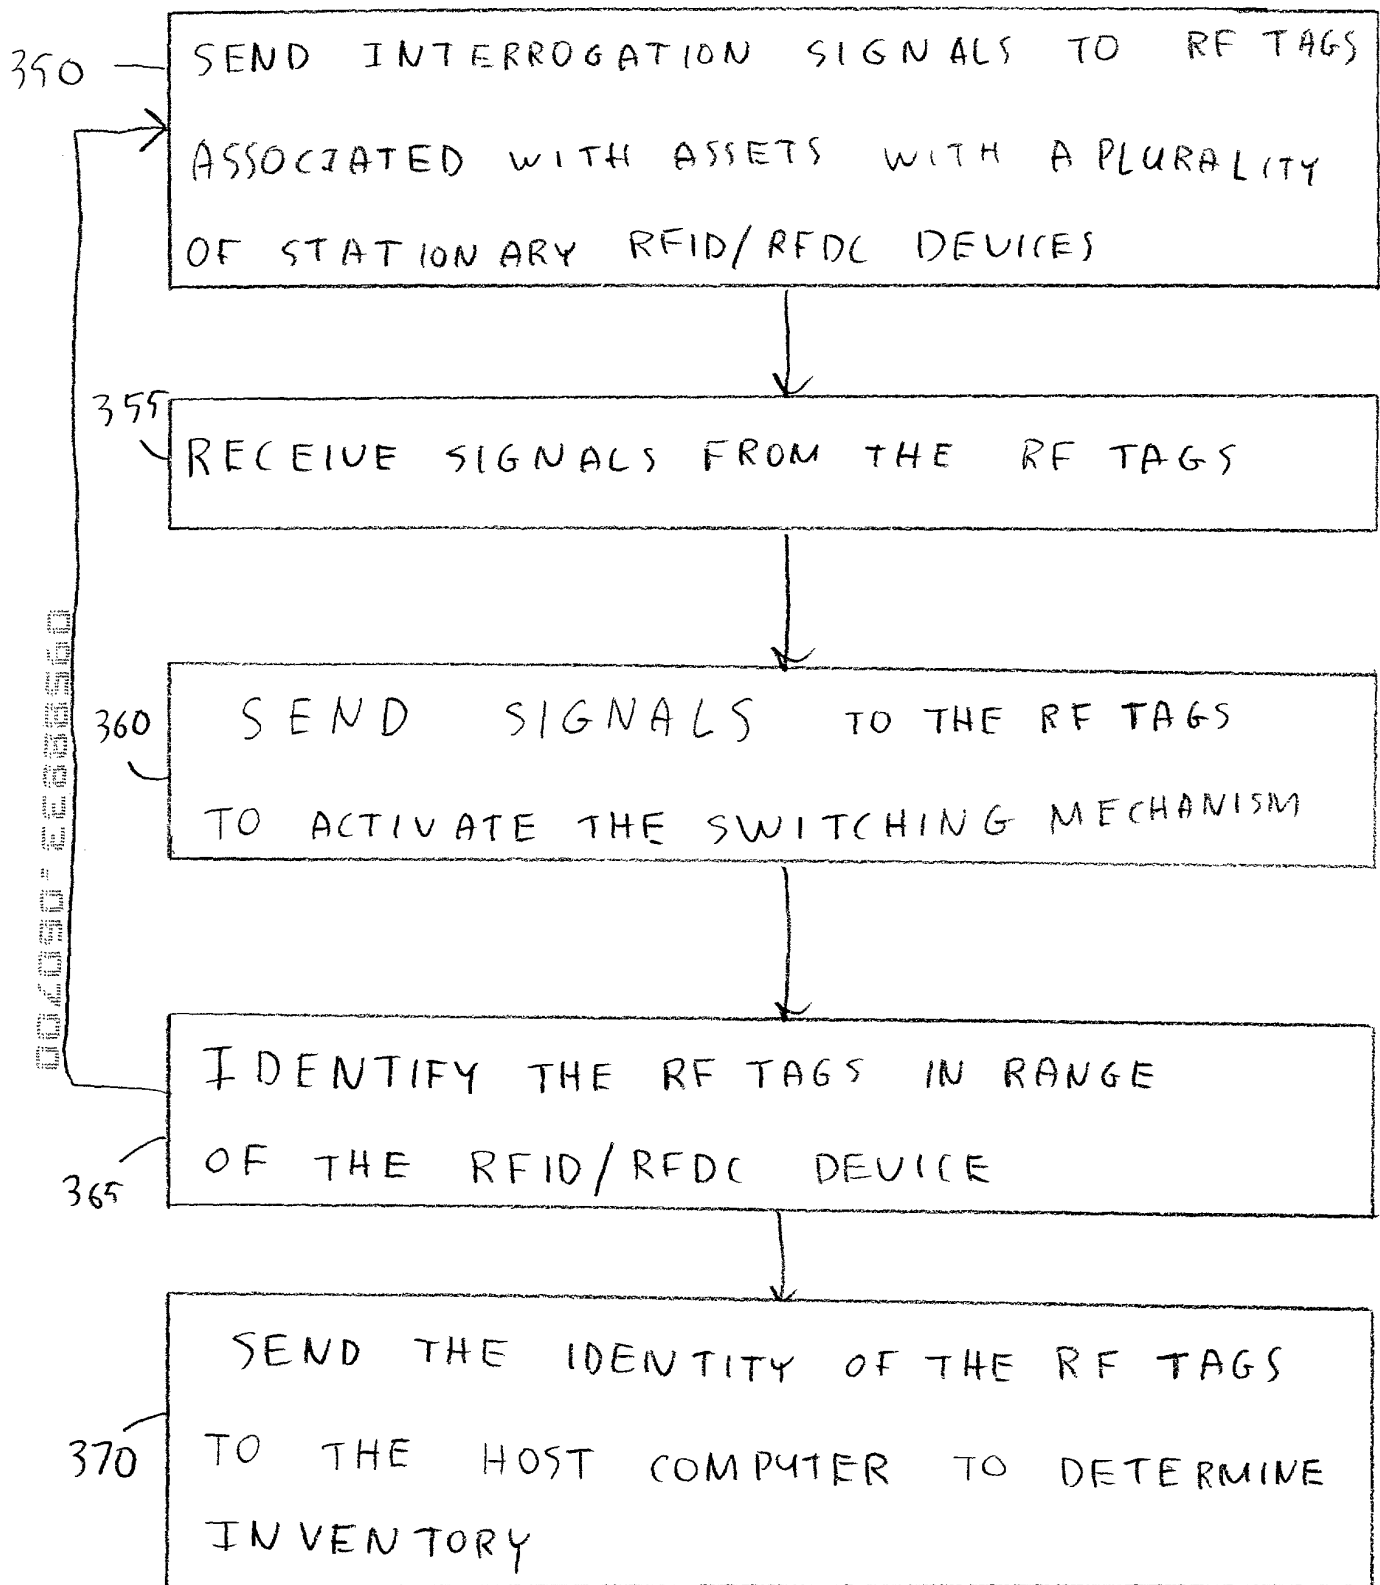 350
SEND INTERROGATION SIGNALS TO RF TAGS
ASSOCIATED WITH ASSETS WITH A PLURALITY
OF STATIONARY RFID/RFDC DEVICES
355
RECEIVE SIGNALS FROM THE RF TAGS
360
SEND SIGNALS TO THE RF TAGS
TO ACTIVATE THE SWITCHING MECHANISM
365
IDENTIFY THE RF TAGS IN RANGE
OF THE RFID/RFDC DEVICE
370
SEND THE IDENTITY OF THE RF TAGS
TO THE HOST COMPUTER TO DETERMINE
INVENTORY